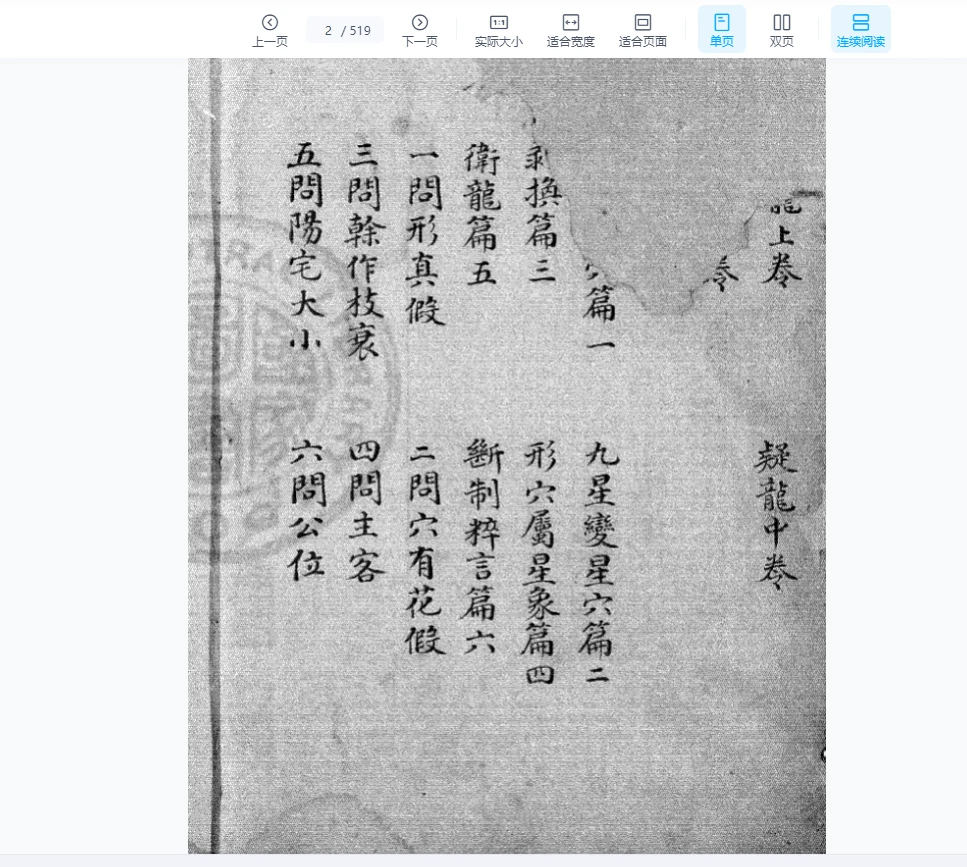 上一页
2 / 519
下一页
1:1
实际大小
适合宽度
适合页面
单页
双页
连续阅读
龍上卷
疑龍中卷
卷
篇一
九星變星穴篇二
剥換篇三
形穴屬星象篇四
衛龍篇五
斷制粹言篇六
一問形真假
二問穴有花假
三問榦作枝衰
四問主客
五問陽宅大小
六問公位